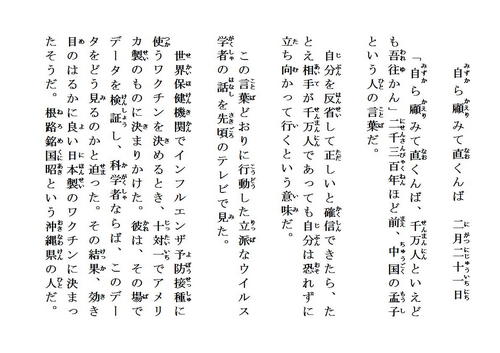 自ら顧みて直くんば　二月二十一日
「自ら顧みて直くんば、千万人といえど
も吾往かん」二千三百年ほど前、中国の孟子
という人の言葉だ。
自分を反省して正しいと確信できたら、た
とえ相手が千万人であっても自分は恐れずに
立ち向かって行くという意味だ。
この言葉どおりに行動した立派なウイルス
学者の話を先頃のテレビで見た。
世界保健機関でインフルエンザ予防接種に
使うワクチンを決めるとき、十対一でアメリ
カ製のものに決まりかけた。彼は、その場で
データを検証し、科学者ならば、このデー
タをどう見るのかと迫った。その結果、効き
目のはるかに良い日本製のワクチンに決まっ
たそうだ。根路銘国昭という沖縄県の人だ。